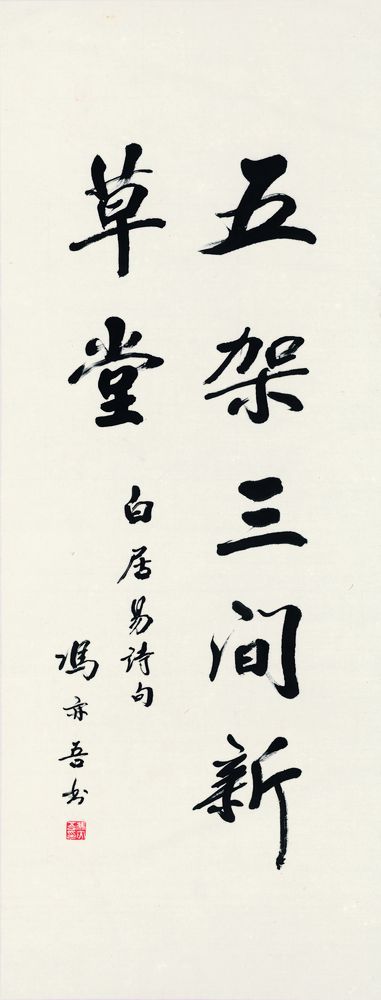 五架三间新
草堂
白居易诗句
冯亦吾书